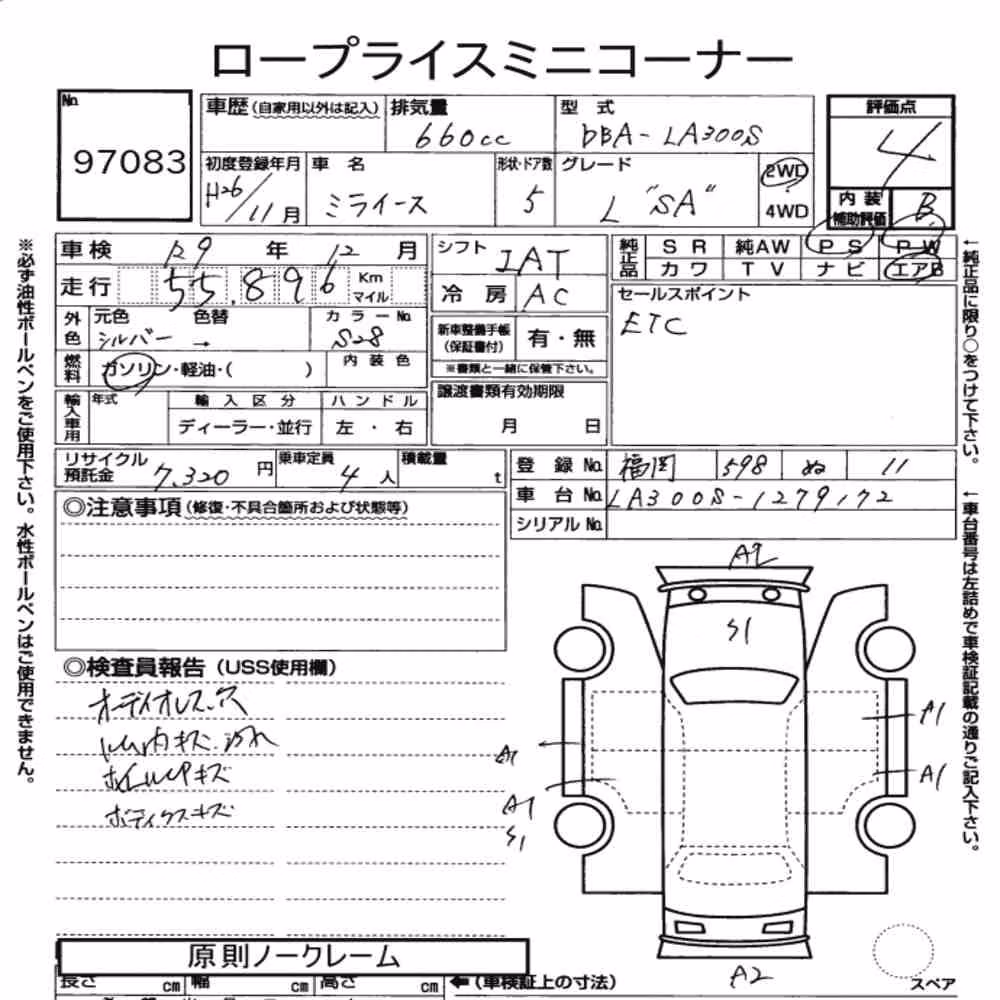 ロープライスミニコーナー
No.
97083
車歴(自家用以外は記入)
排気量
660cc
型 式
DBA-LA300S
評価点
4
初度登録年月
H26/11月
車 名
ミライース
形状・ドア数
5
グレード
L "SA"
2WD
4WD
内 装
補助評価
B
車検
29 年 12 月
シフト
IAT
純正品
S R
純AW
P S
P W
カ ワ
T V
ナ ビ
エアB
走行
55,896
Km
マイル
冷 房
AC
セールスポイント
ETC
外色
元色
色替
シルバー →
カ ラ ー No.
S28
新車整備手帳
(保証書付)
有・無
※書類と一緒に保管下さい。
燃料
ガソリン・軽油・( )
内 装 色
輸入車用
年式
輸 入 区 分
ハ ン ド ル
ディーラー・並行
左 ・ 右
譲渡書類有効期限
月 日
リサイクル
預託金
7,320 円
乗車定員
4 人
積載量
t
登 録 No.
福岡 598 ぬ 11
車 台 No.
LA300S-1279172
シリアル No.
◎注意事項(修復・不具合箇所および状態等)
◎検査員報告(USS使用欄)
オーディオレス.穴
トリム内キズ.汚れ
ホイールCPキズ
ボディクスキズ
A2
S1
A1
A1
A1
A1
S1
A2
スペア
原則ノークレーム
長さ cm 幅 cm 高さ cm
←(車検証上の寸法)
※必ず油性ボールペンをご使用下さい。水性ボールペンはご使用できません。
←純正品に限り○をつけて下さい。
←車台番号は左詰めで車検証記載の通りご記入下さい。